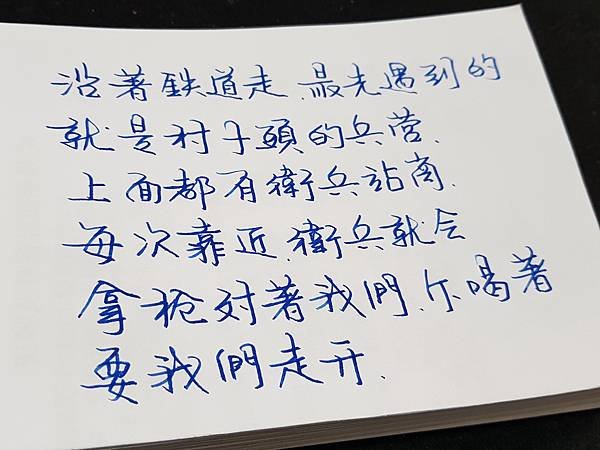 沿著鉄道走.最先遇到的
就是村子頭的兵营.
上面都有衛兵站崗.
每次靠近.衛兵就会
拿枪对著我們.吆喝著
要我們走开.